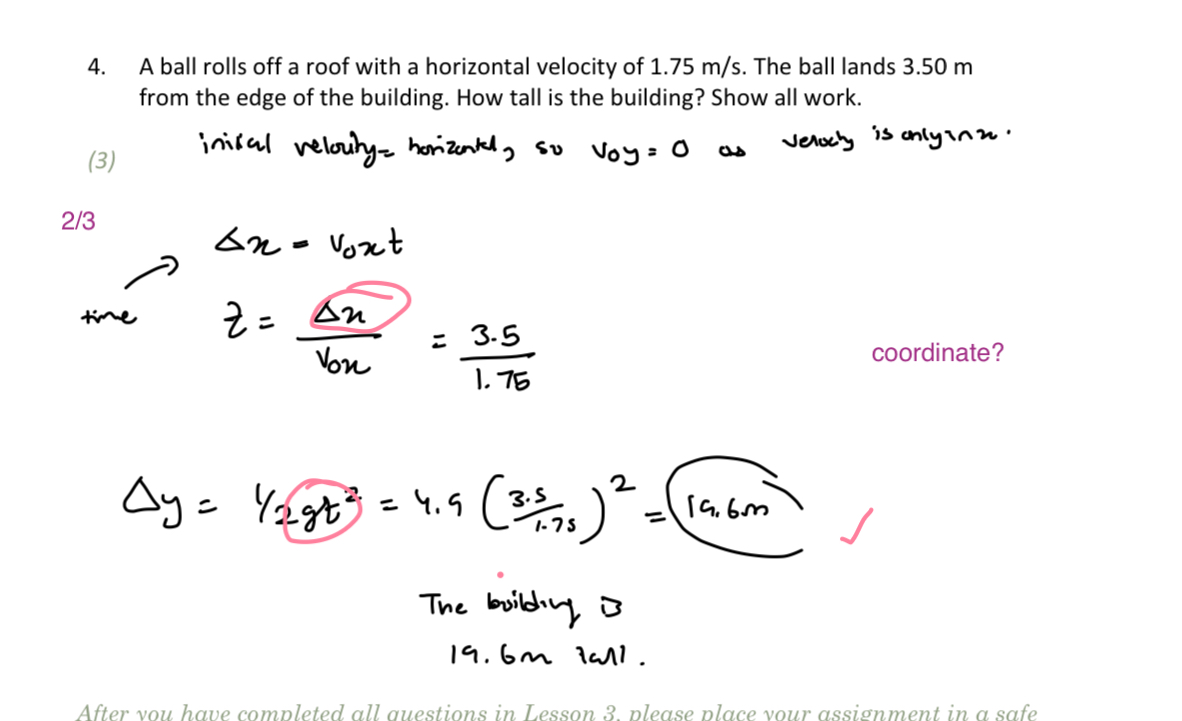 4. A ball rolls off a roof with a horizontal velocity of 1.75 m/s. The ball lands 3.50 m
from the edge of the building. How tall is the building? Show all work.
inital velocity = horizontal, so Voy = 0 as velocity is only in x.
(3)
2/3
Δx = Voxt
time
t = Δx / Vox = 3.5 / 1.75
coordinate?
Δy = 1/2gt² = 4.9 (3.5/1.75)² = 19.6m ✓
The building is
19.6m tall.
After you have completed all questions in Lesson 3, please place your assignment in a safe